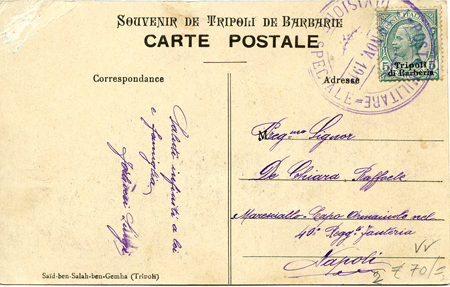 SOUVENIR DE TRIPOLI DE BARBARIE
CARTE POSTALE
Correspondance
Adresse
POSTA MILITARE
SPECIALE
NOV. 19
5 5
Tripoli
di Barberia
Saluti infiniti a lei
e famiglia
Luigi
M
Preg.mo Signor
De Chiara Raffaele
Maresciallo Capo Armaiuolo nel
40º Regg.to Fanteria
Napoli
70/
Said-ben-Salah-ben-Gemba (Tripoli)